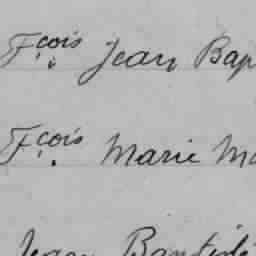 Fçois Jean Bap
Fçois Marie Ma
Jean Baptiste